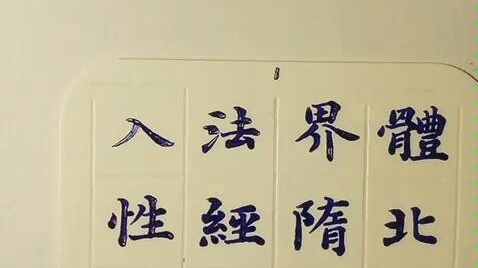 入法界體
性經隋北